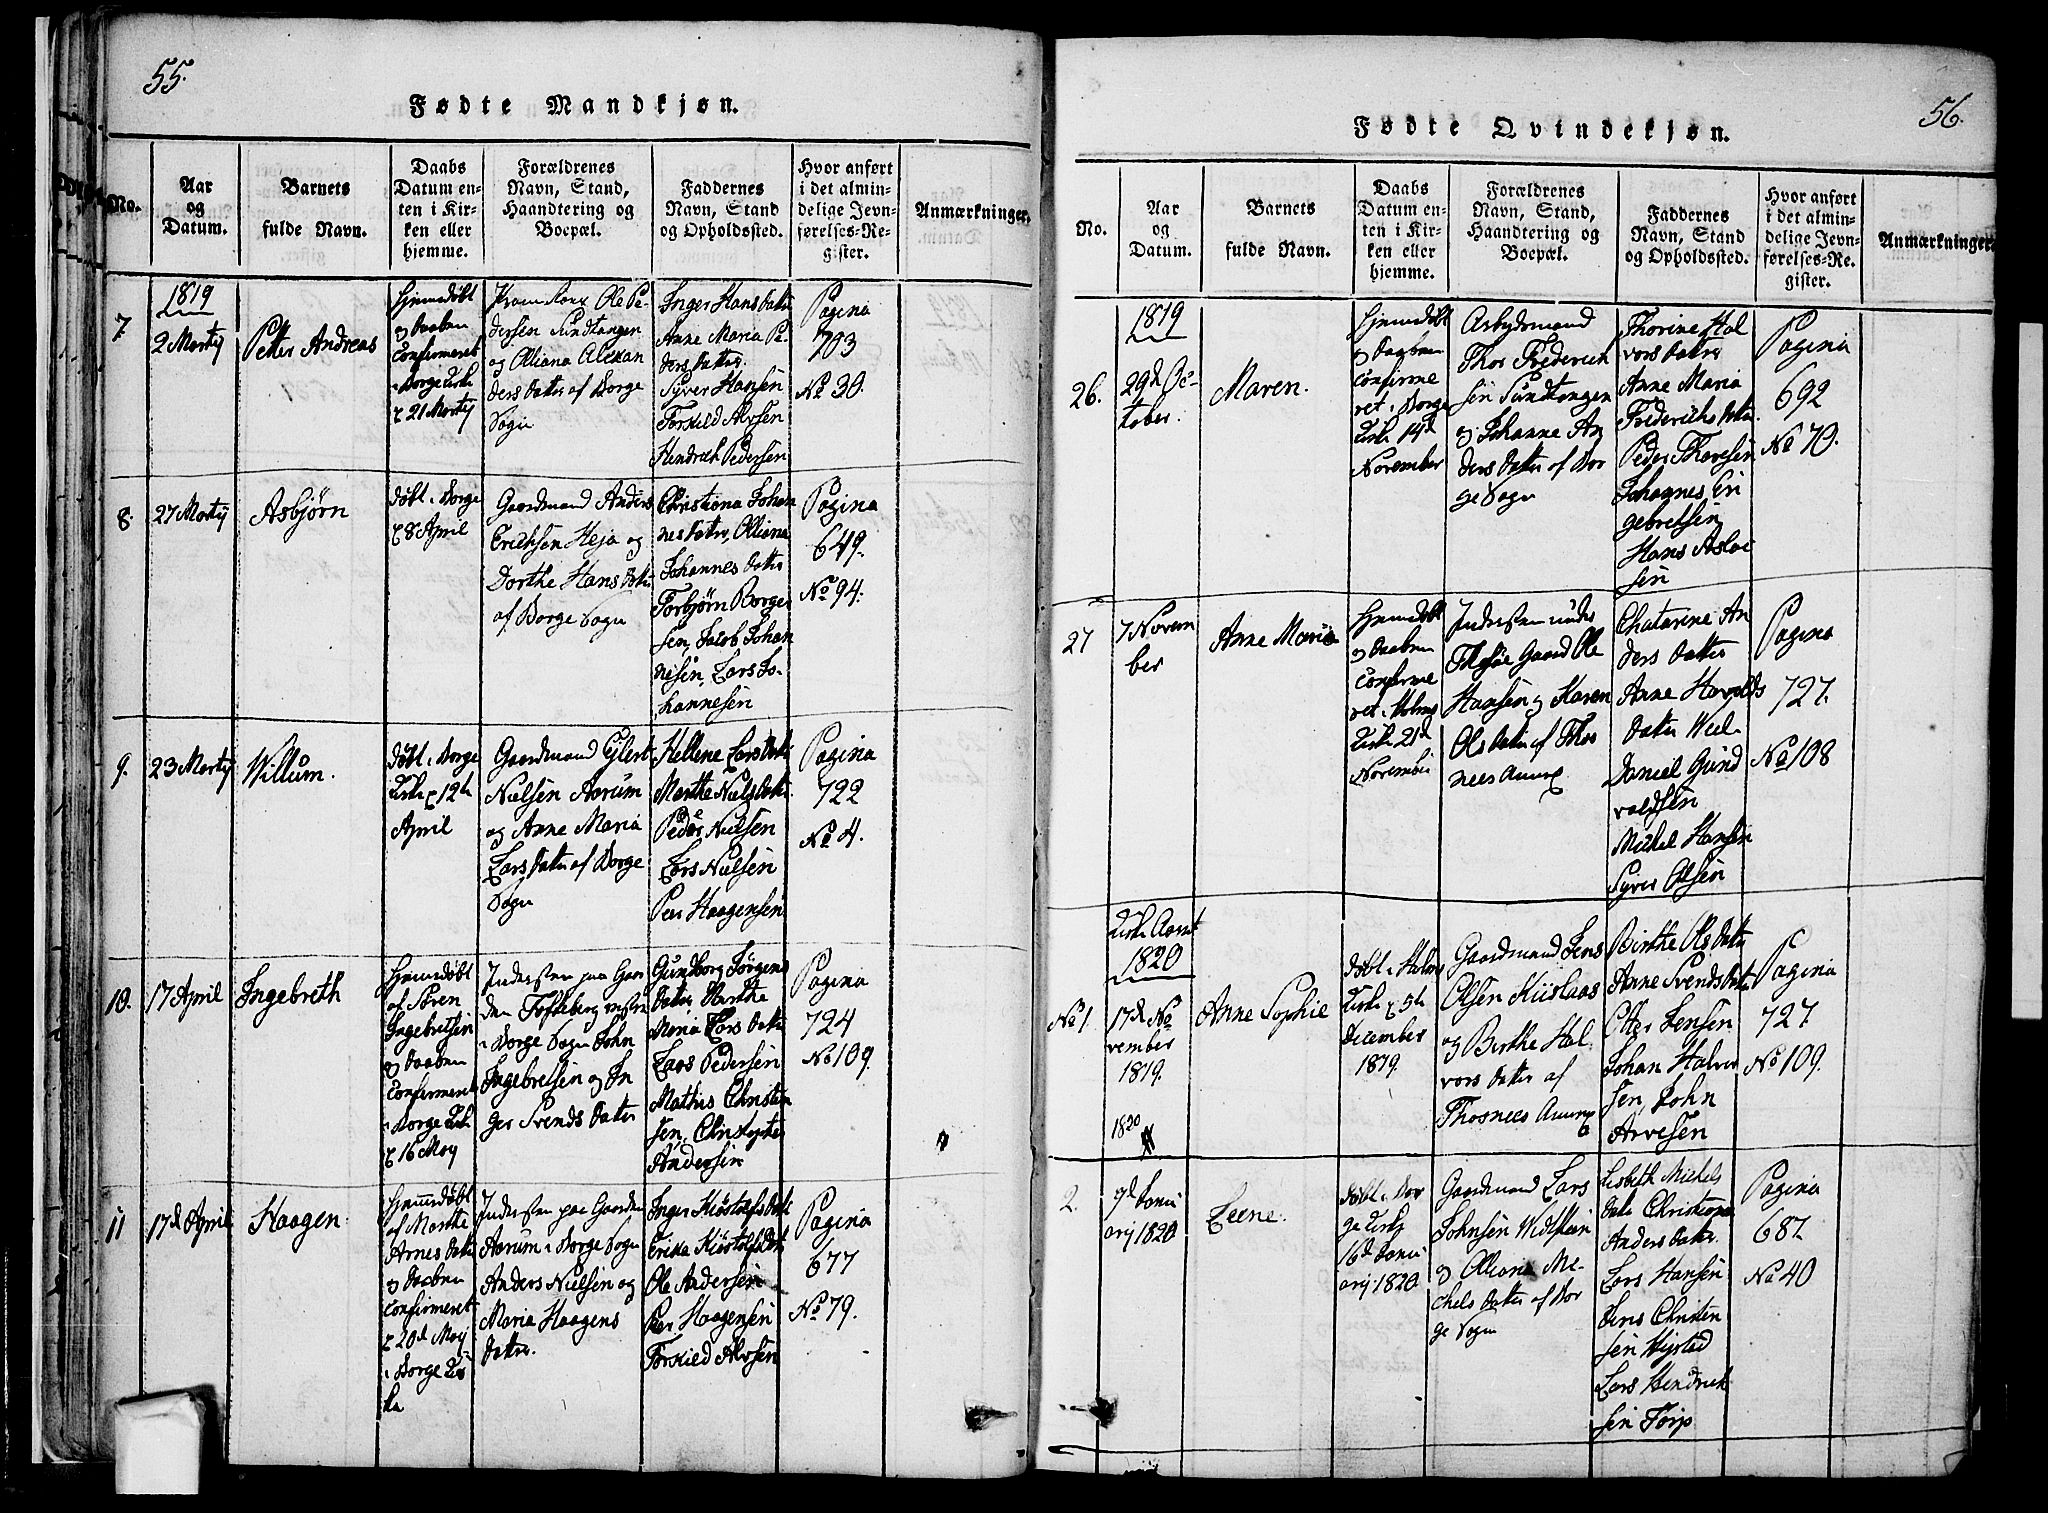 55.
Fødte Mandkjøn.
No.
Aar
og
Datum.
Barnets
fulde Navn.
Daabs
Datum en-
ten i Kir-
ken eller
hjemme.
Forældrenes
Navn, Stand,
Haandtering og
Boepæl.
Faddernes
Navn, Stand
og Opholdssted.
Hvor anført
i det almin-
delige Jevn-
førelses-Re-
gister.
Anmærkninger.
7
1819
2 Martij
Petter Andreas
Hjemmedøbt
og Daaben
confirmeret
i Borge Kirke
21 Martij
Ole Pe-
dersen Sundtangen
og Alexan
ders datter af Borge
Sogn
Inger Hans datter
Anne Maria Pe-
ders datter
Syver Hansen
Torkild Alvsen
Hendrich Pedersen
Pagina
793
No 30.
8.
27 Martij
Asbjørn
døbt i Borge
8 April
Gaardmand Anders
Erichsen Heja og
Dorthe Hans datter
af Borge Sogn
Christiana Johan
nes datter, Olliana
Johannes datter
Torbjørn Borge
sen, Jacob Johan
nesen, Lars Jo-
hannesen
Pagina
649.
No 94.
9.
23 Martij
Willum.
døbt i Borge
Kirke 12te
April
Gaardmand Eylert
Nielsen Aarum
og Anne Maria
Lars datter af Borge
Sogn
Hellene Lars datter
Marthe Niels datter
Peder Nielsen
Lars Nielsen
Peer Haagensen
Pagina
722
No 4.
10.
17 April
Ingebreth
Hjemmedøbt
af Søren
Ingebretsen
og Daaben
confirmeret
i Borge Kirke
16 May
Inderst paa Gaar
den Tofteberg
i Borge Sogn John
Ingebretsen og In
ger Svends datter
Gundborg Jørgens
datter, Marthe
Maria Lars datter
Lars Pedersen
Mathis Christen
sen, Christopher
Andersen
Pagina
724
No 109.
11
17d April
Haagen
Hjemmedøbt
af Marthe
Arnes datter
og Daaben
confirmeret
20d May
i Borge Kir
ke
Indersten paa Gaarden
Aarum i Borge Sogn
Anders Nielsen og
Maria Haagens
datter.
Inger Kiøstolfs datter
Erika Kiøstolfs datter
Ole Andersen
Peer Haagensen
Torkild Alvsen
Pagina
677
No 79.
56.
Fødte Qvindekjøn.
No.
Aar
og
Datum.
Barnets
fulde Navn.
Daabs
Datum en-
ten i Kir-
ken eller
hjemme.
Forældrenes
Navn, Stand,
Haandtering og
Boepæl.
Faddernes
Navn, Stand
og Opholdssted.
Hvor anført
i det almin-
delige Jevn-
førelses-Re-
gister.
Anmærkninger.
26.
1819
29d Oc-
tober.
Maren.
Hjemmedøbt
og Daaben
confirme
ret i Borge
Kirke 14d
November
Arbydsmand
Thor Frederich
sen Sundtangen
og Johanne An
ders datter af Bor
ge Sogn
Thorine Hal
vors datter
Anne Maria
Frederichs datter
Peder Thoresen
Johannes En
gebretsen
Hans Asloc
sen
Pagina
692
No 70.
27
7 Novem
ber
Anne Maria
Hjemmedøbt
og Daaben
confirme
ret i Holms
Kirke 21d
November
Indersten under
Gaard Ole
Hansen og Karen
Ols datter af Thos
nees
Chatarine An
ders datter
Anne Harolds
datter
Daniel Gund
valdsen
Michel Hansen
Syver Olsen
Pagina
727.
No 108
Kirke Aaret
1820
No 1.
17d No
vember
1819.
Anne Sophie
døbt i Holms
Kirke 5te
December
1819.
Gaardmand Jens
Olsen Kiislaas
og Berthe Hal
vors datter af
Thosnees
Birthe Ols datter
Anne Svends datter
Otter Jensen
Johan Halvor
sen, John
Arvesen
Pagina
727
No 109.
1820
2.
9d Janu
arij 1820
Leene.
døbt i Bor
ge Kirke
16d Janu
arij 1820.
Gaardmand Lars
Johnsen
og Olliana Mi-
chels datter af Bor
ge Sogn
Lisbeth Michels
datter Christiana
Anders datter
Lars Hansen
Jens Christen
sen
Lars Hendrich
sen Torp
Pagina
687.
No 40